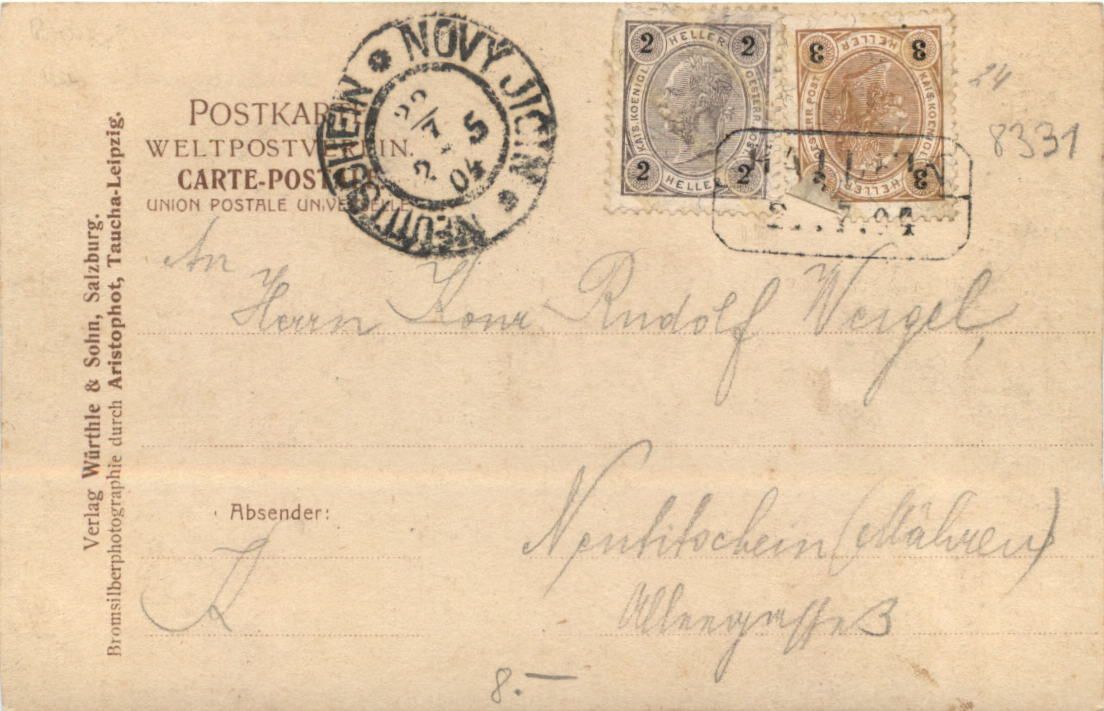 POSTKAR
WELTPOSTVER IN.
CARTE-POST
UNION POSTALE UNIVERSELLE
NOVÝ JIČÍN * NEUTITSCHEIN *
22/7 5
2 04
2 HELLER 2
KAIS. KOENIGL. OESTERR. POST
2 HELLER 2
3 HELLER 3
KAIS. KOENIGL. OESTERR. POST
3 HELLER 3
7.04
24
8331
An
Herrn Rudolf Weigel,
Neutitschein (Mähren)
Alleegasse 3
Absender:
R
8.—
Verlag Würthle & Sohn, Salzburg.
Bromsilberphotographie durch Aristophot, Taucha-Leipzig.